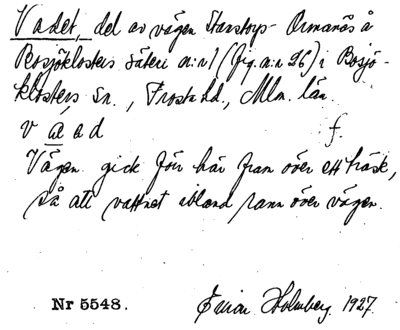 Vadet, del av vägen Stanstorp - Ormanäs å
Bosjöklosters säteri n:r 1 (fig. n:r 26) i Bosjö-
klosters sn., Frosta hd., Mlm. län.
v a a d f.
Vägen gick förr här fram över ett träsk,
så att vattnet ibland rann över vägen.
Nr 5548. Einar Holmberg. 1927.